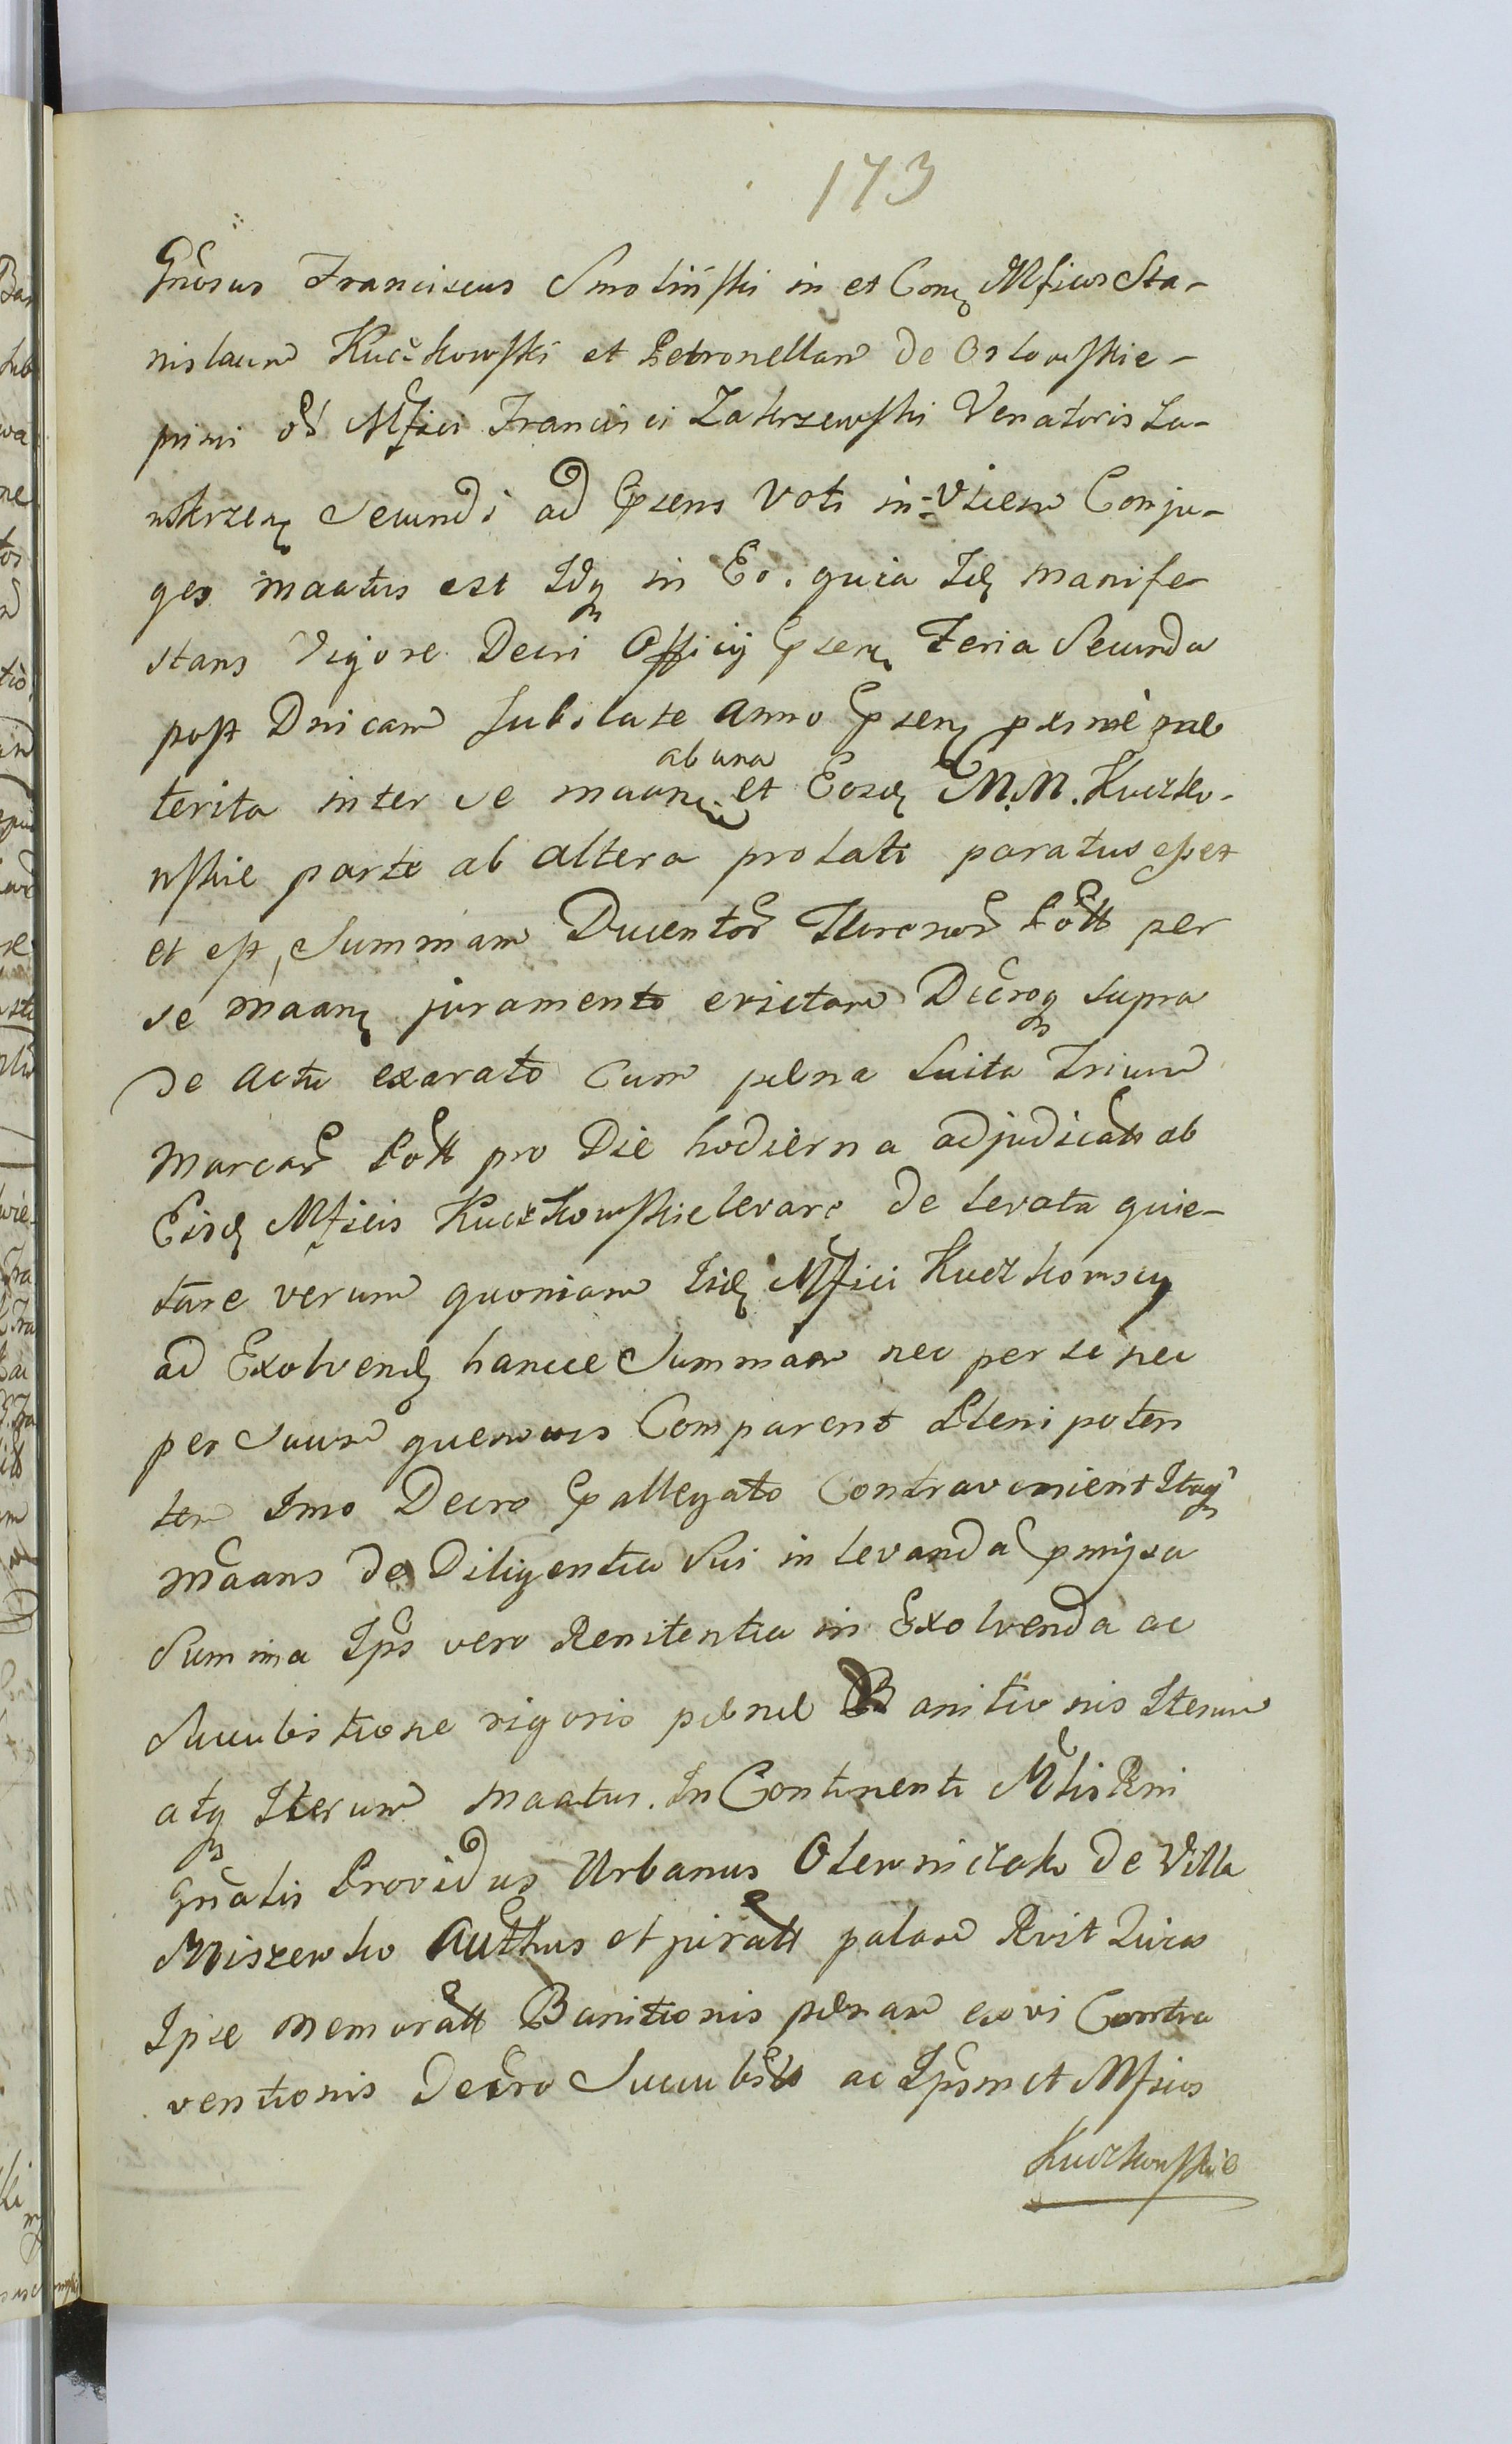 173
Gnosus Franciscus Smoliński in et Conq Mficos Sta-
nislaum Kuczkowski et Petronellam de Ostowskie-
primi od Mfici Francisci Zakrzewski Venatoris Lu-
Secundi ad Ppsens Voti in-Vicem Conju-
ges maatus est Idq in Eo. quia Idq manife-
stans Vigore Decri Officij Ppsenq Feria Secunda
post Dnicam Jubilate Anno Ppsenq pxime prae
terita inter se maanq ab una et Eosdq M.M. Kuczko-
wskie parte ab altera prolati paratus esset
et est, Summam Ducentor Florenor Pollt per
se maanq juramento evictam Decroq supra
de actu exarato cum paena luita Trium
Marcar Pollt pro Die hodierna adjudicat ab
Eisdq Mficis Kuczkowskie levare de levata quie-
tare verum quoniam Iidq Mfici Kuczkowscy
ad Exolvendq hancce Summam nec per se nec
per Suum quemvis Comparent Plenipoten
tem Imo Decro Ppallegato Contravenient Itaq
maans de Diligentia Sui in levanda Ppmissa
Summa Ips vero Renitentia in Exolvenda ac
Succubitione rigoris paenae Banitionis Iterum
atq Iterum maatur. In Continenti Mtis Rni
Gnalis Providus Urbanus Olewniczak de Villa
Miszewko Authus et juratt palam Rvit Quia
Ipse memoratt Banitionis paenam ex vi Contra
ventionis Decro Succubit ac Ipsmet Mficos
Kuczkowskie